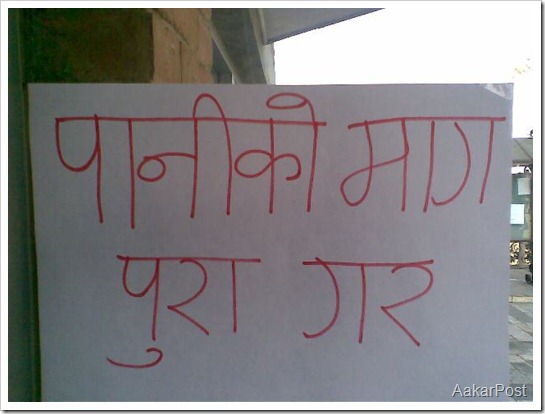 पानीको माग
पुरा गर
AakarPost